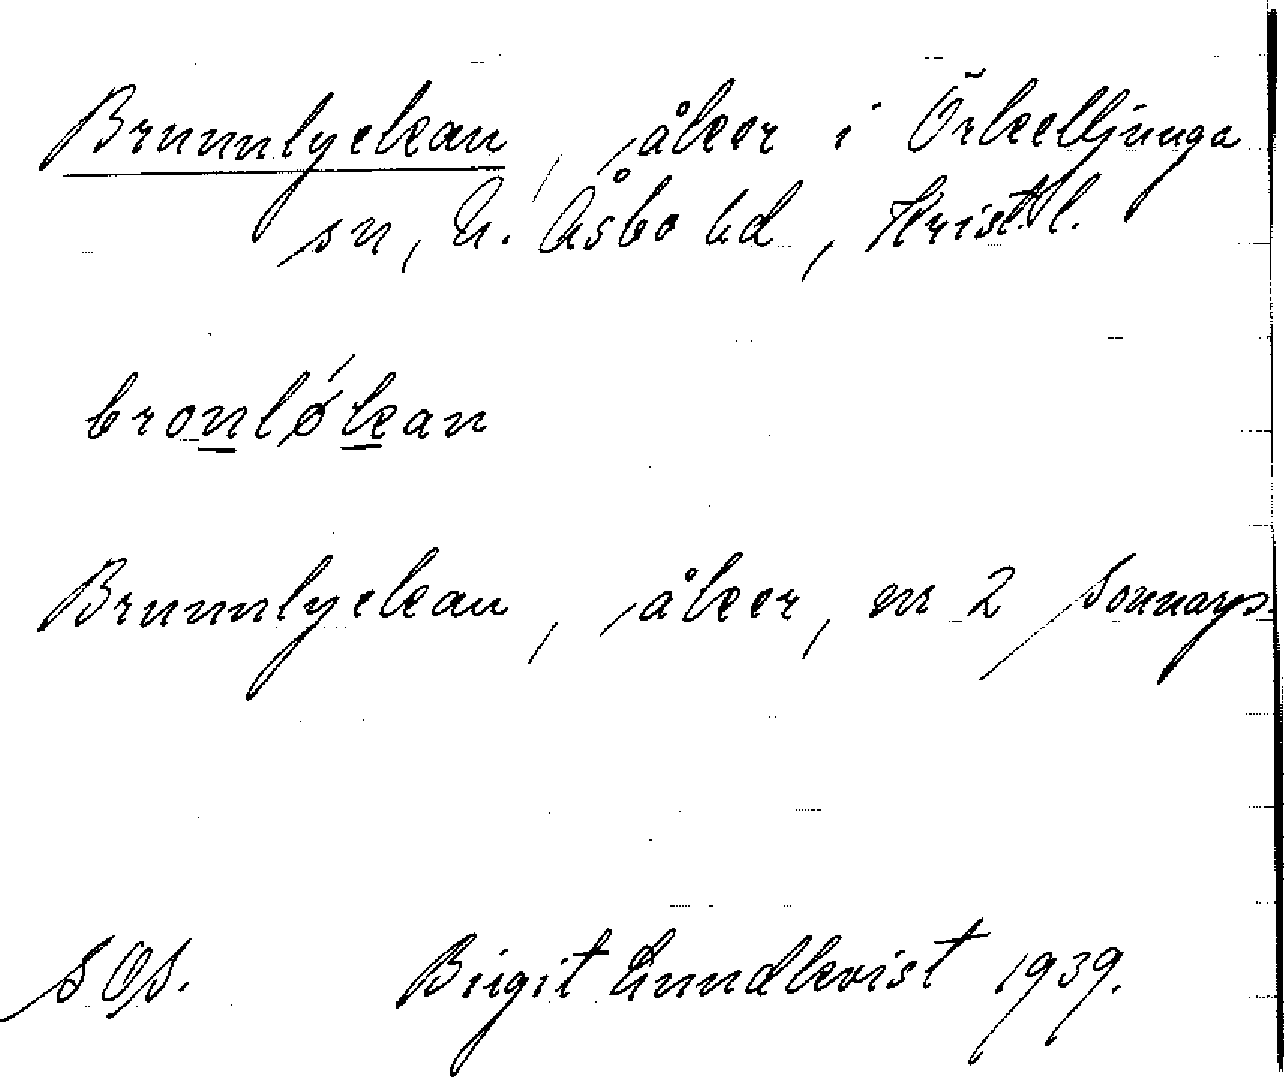 Brunnlyckan, åker i Örkelljunga
sn, N. Åsbo hd, Krist. l.
bronlǿkan
Brunnlyckan, åker, nr 2 Sonnarp.
SOS. Birgit Lundkvist 1939.